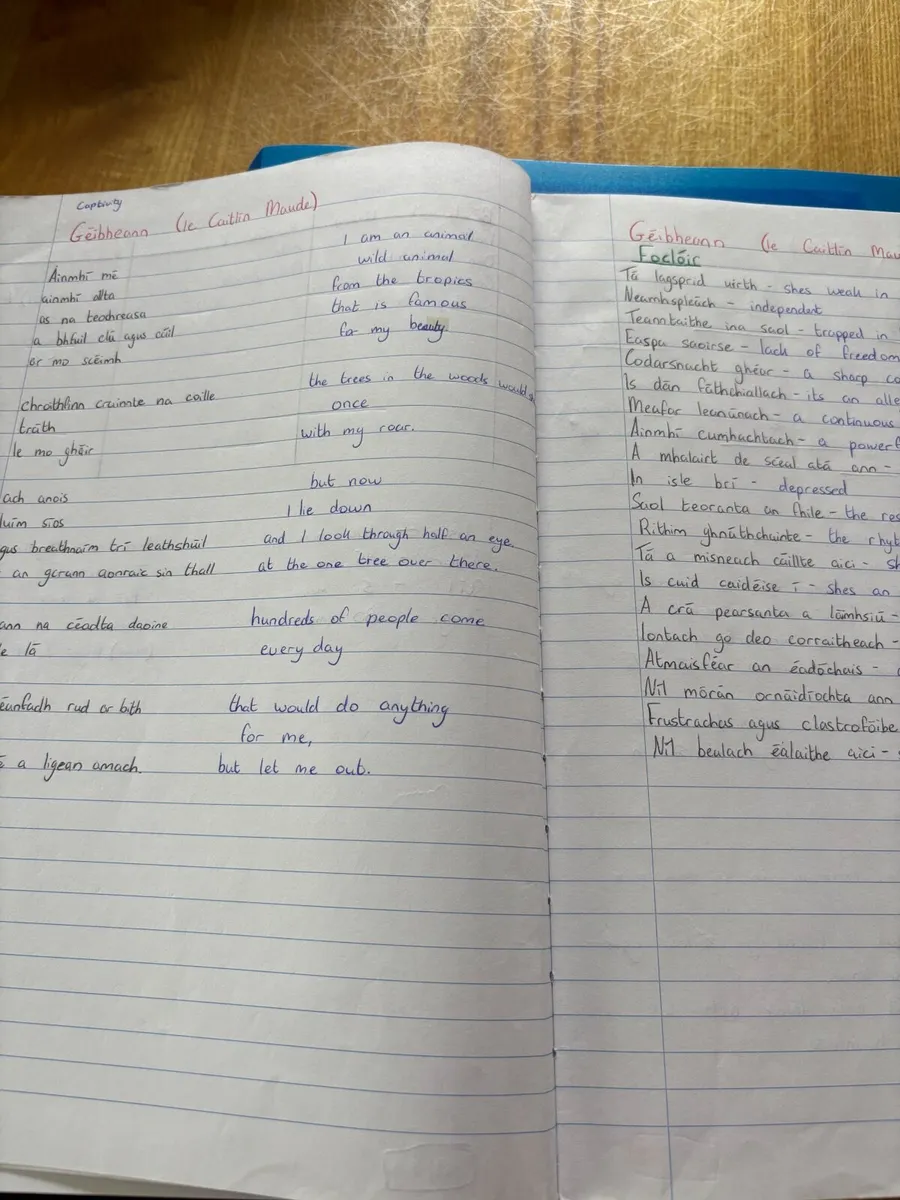 Captivity
Géibheann (le Caitlín Maude)
Ainmhí mé
ainmhí allta
as na teochreasa
a bhfuil clú agus cáil
ar mo scéimh
chroithfinn crainnte na coille
tráth
le mo gháir
ach anois
luím síos
gus breathnaím trí leathshúil
an gcrann aonraic sin thall
ann na céadta daoine
e lá
éanfadh rud ar bith
é a ligean amach.
I am an animal
wild animal
from the tropics
that is famous
for my beauty
the trees in the woods would
once
with my roar.
but now
I lie down
and I look through half an eye
at the one tree over there.
hundreds of people come
every day
that would do anything
for me,
but let me out.
Géibheann (le Caitlín Mau
Foclóir
Tá lagsprid uirth - shes weak in
Neamhspleách - independent
Teanntaithe ina saol - trapped in
Easpa saoirse - lack of freedom
Codarsnacht ghéar - a sharp co
Is dán fáthchiallach - its an alle
Meafar leanúnach - a continuous
Ainmhí cumhachtach - a powerf
A mhalairt de scéal atá ann -
In isle brí - depressed
Saol teoranta an fhile - the res
Rithim ghnáthchainte - the rhyt
Tá a misneach caillte aici - sh
Is cuid caidéise í - shes an
A crá pearsanta a láimhsiú -
Iontach go deo corraitheach -
Atmaisféar an éadóchais -
Níl mórán ornáidíochta ann
Frustrachas agus clastrofóibe
Níl bealach éalaithe aici -